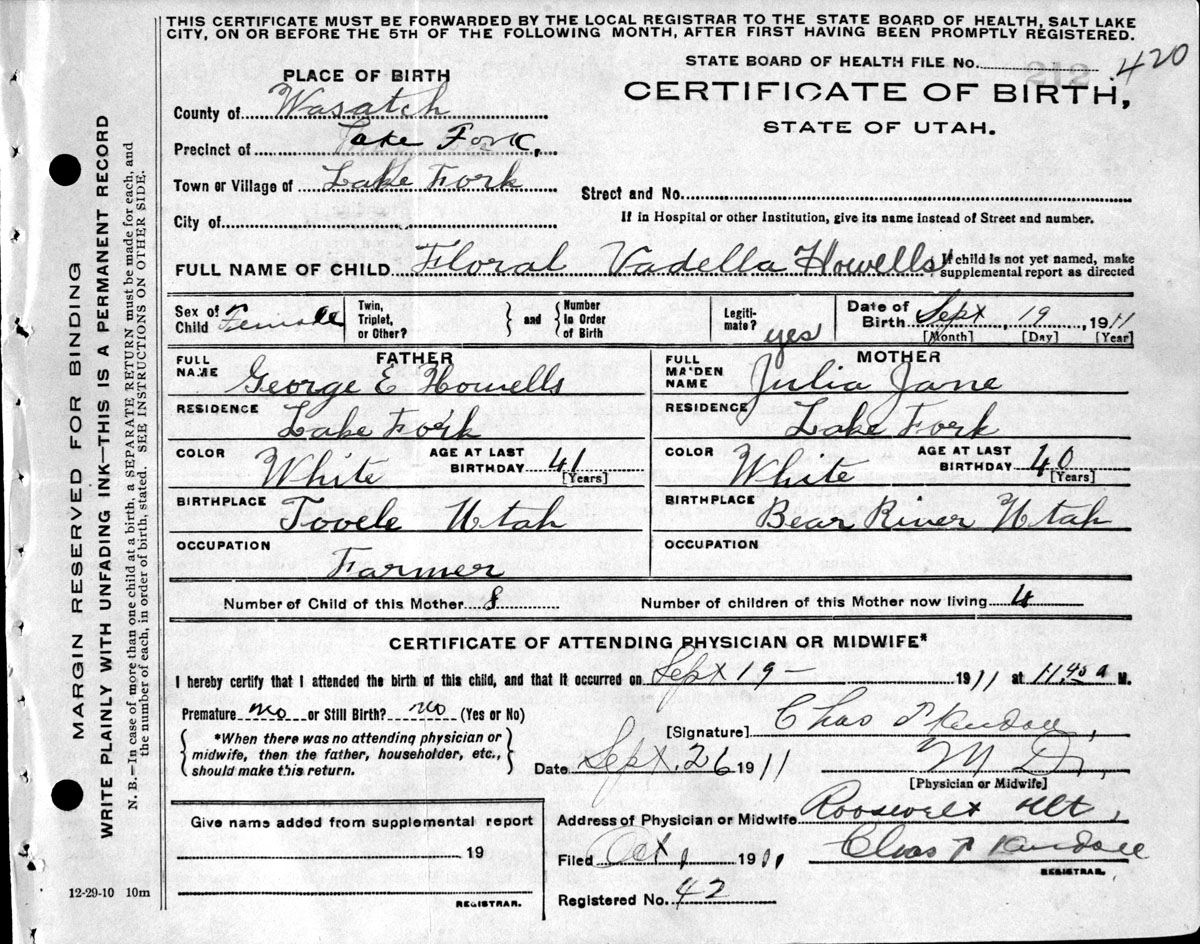 THIS CERTIFICATE MUST BE FORWARDED BY THE LOCAL REGISTRAR TO THE STATE BOARD OF HEALTH, SALT LAKE
CITY, ON OR BEFORE THE 5TH OF THE FOLLOWING MONTH, AFTER FIRST HAVING BEEN PROMPTLY REGISTERED.
STATE BOARD OF HEALTH FILE No. 420
212
PLACE OF BIRTH
CERTIFICATE OF BIRTH,
STATE OF UTAH.
County of Wasatch
Precinct of Lake Fork,
Town or Village of Lake Fork
Street and No.
City of
If in Hospital or other Institution, give its name instead of Street and number.
FULL NAME OF CHILD Floral Vadella Howells
If child is not yet named, make
supplemental report as directed
Sex of Child Female
Twin, Triplet, or Other?
and
Number In Order of Birth
Legiti-mate? yes
Date of Birth Sept, 19, 1911
[Month] [Day] [Year]
FATHER
FULL NAME George E Howells
RESIDENCE Lake Fork
COLOR White AGE AT LAST BIRTHDAY 41 [Years]
BIRTHPLACE Tooele Utah
OCCUPATION Farmer
MOTHER
FULL MAIDEN NAME Julia Jane
RESIDENCE Lake Fork
COLOR White AGE AT LAST BIRTHDAY 40 [Years]
BIRTHPLACE Bear River Utah
OCCUPATION
Number of Child of this Mother 8 Number of children of this Mother now living 4
CERTIFICATE OF ATTENDING PHYSICIAN OR MIDWIFE*
I hereby certify that I attended the birth of this child, and that it occurred on Sept 19 – 1911 at 11.40 a M.
Premature no or Still Birth? no (Yes or No)
*When there was no attending physician or
midwife, then the father, householder, etc.,
should make this return.
[Signature] Chas
M D,
[Physician or Midwife]
Date Sept. 26 1911
Address of Physician or Midwife Roosevelt Ut,
Filed Oct 1 1911 Chas
REGISTRAR.
Registered No. 42
Give name added from supplemental report
19
REGISTRAR.
12-29-10 10m
MARGIN RESERVED FOR BINDING
WRITE PLAINLY WITH UNFADING INK—THIS IS A PERMANENT RECORD
N. B.—In case of more than one child at a birth, a SEPARATE RETURN must be made for each, and
the number of each, in order of birth, stated. SEE INSTRUCTIONS ON OTHER SIDE.